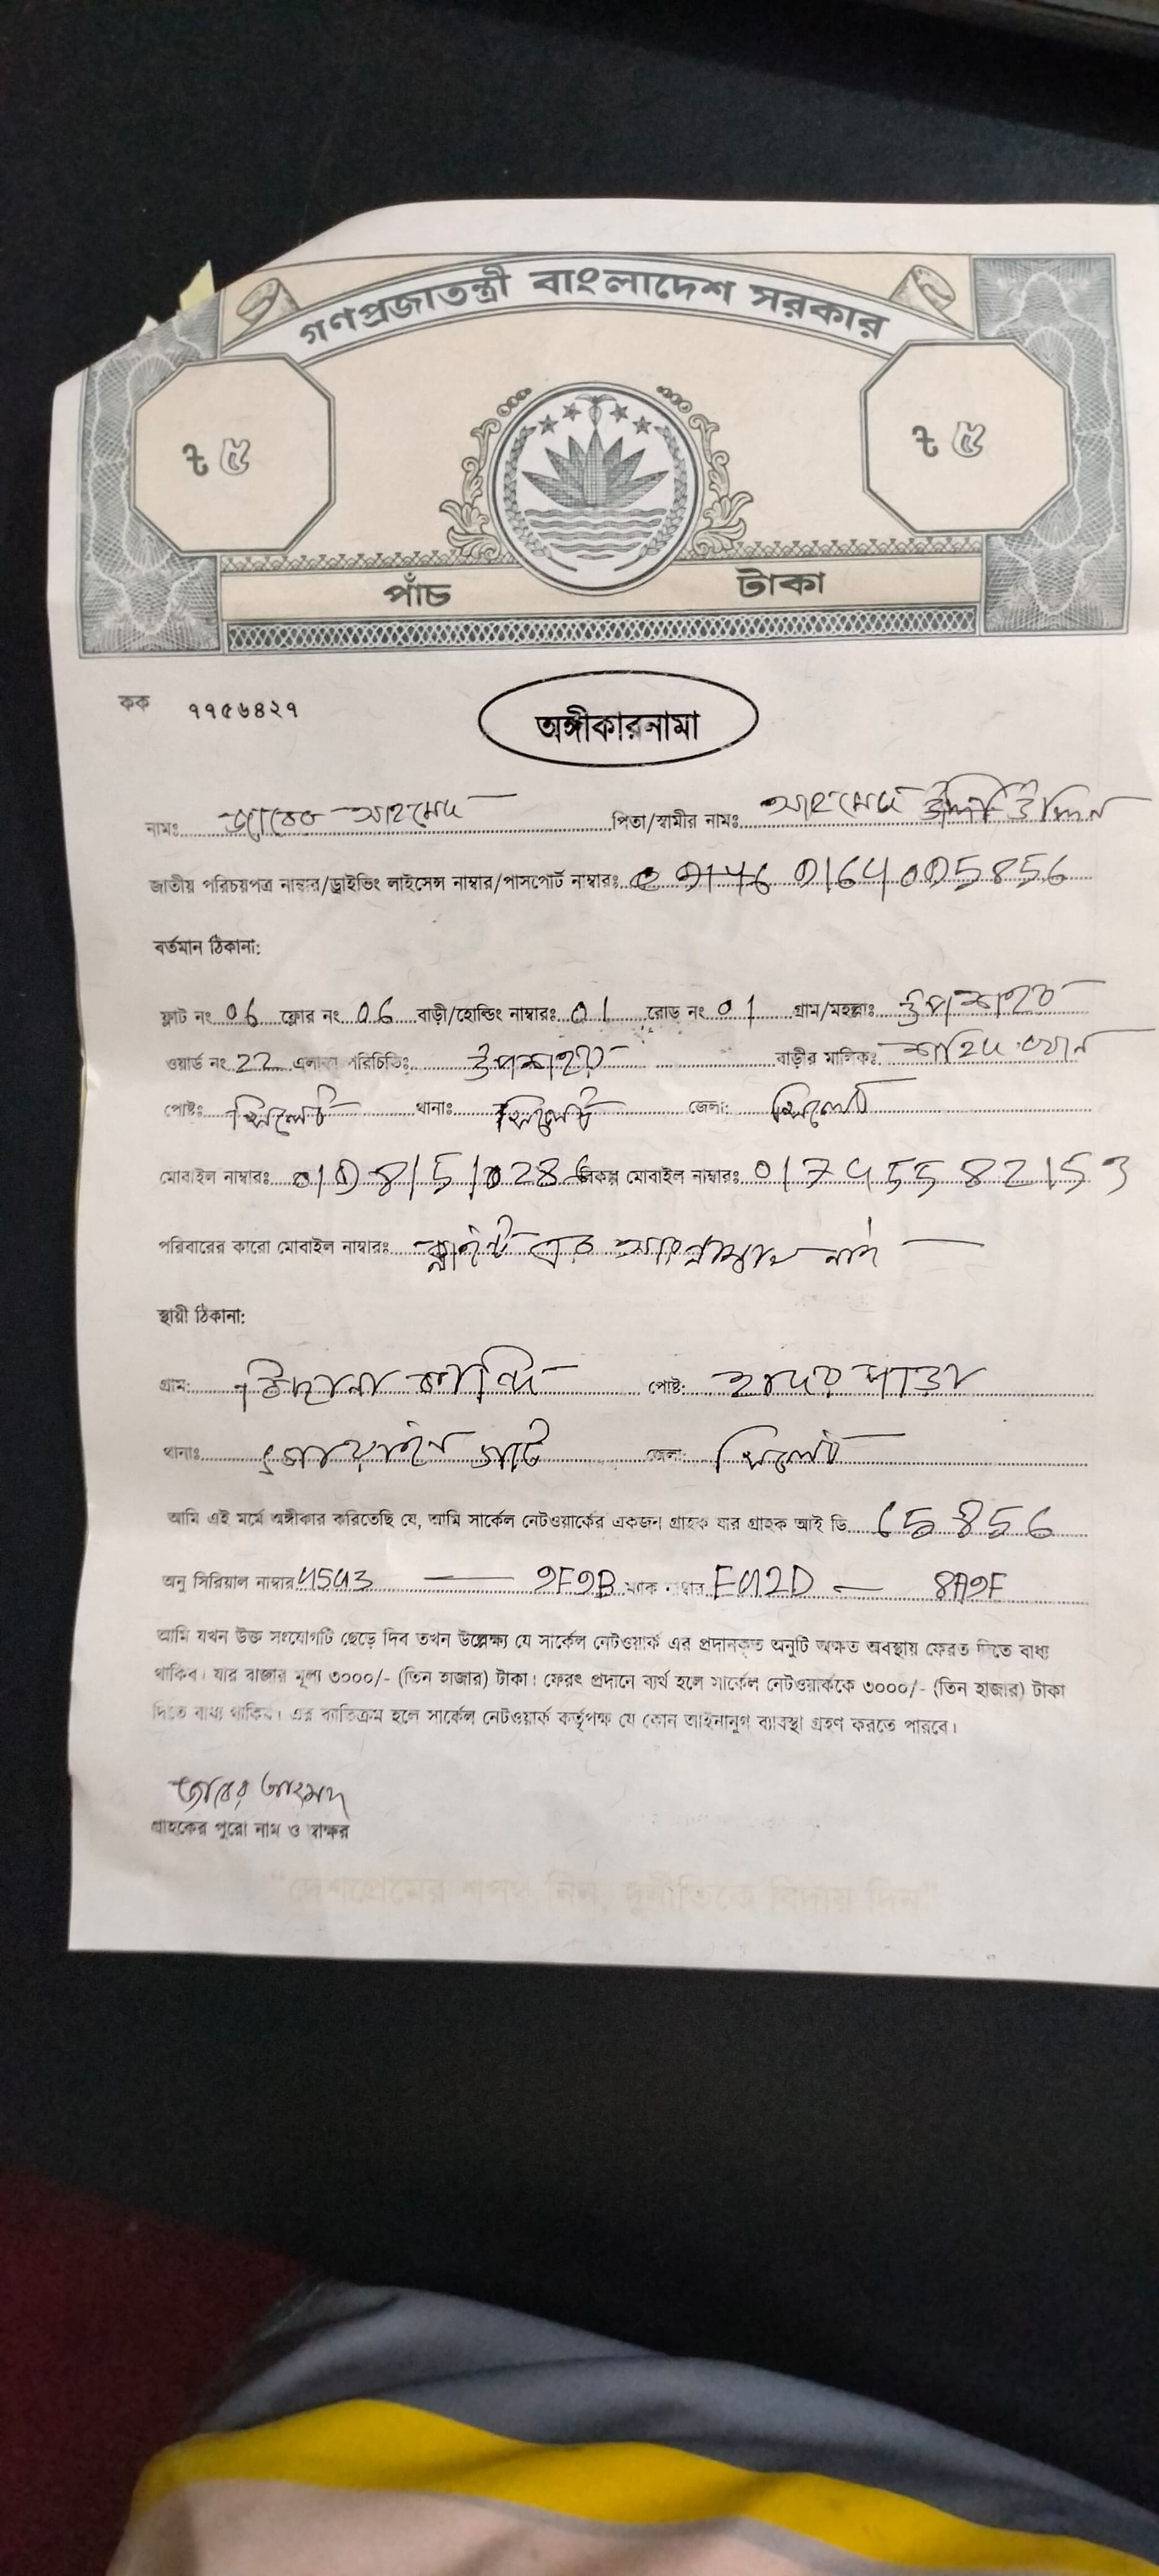 গণপ্রজাতন্ত্রী বাংলাদেশ সরকার
৳ ৫ ৳ ৫
পাঁচ টাকা
কক ৭৭৫৬৪২৭
অঙ্গীকারনামা
নামঃ জাবের আহমেদ পিতা/স্বামীর নামঃ আহমেদ উদ্দিন
জাতীয় পরিচয়পত্র নাম্বার/ড্রাইভিং লাইসেন্স নাম্বার/পাসপোর্ট নাম্বারঃ
বর্তমান ঠিকানা:
ফ্লাট নং 06 ফ্লোর নং 06 বাড়ী/হোল্ডিং নাম্বারঃ 01 রোড নং 01 গ্রাম/মহল্লাঃ উপশহর
ওয়ার্ড নং 22 এলাকা পরিচিতিঃ উপশহর বাড়ীর মালিকঃ শাহিদ খান
পোষ্টঃ সিলেট থানাঃ সিলেট জেলা: সিলেট
মোবাইল নাম্বারঃ বিকল্প মোবাইল নাম্বারঃ 01745582153
পরিবারের কারো মোবাইল নাম্বারঃ নাই
স্থায়ী ঠিকানা:
গ্রাম: পোষ্ট: পাড়া
থানাঃ গোয়াইন ঘাট জেলা: সিলেট
আমি এই মর্মে অঙ্গীকার করিতেছি যে, আমি সার্কেল নেটওয়ার্কের একজন গ্রাহক যার গ্রাহক আই ডি 65856
অনু সিরিয়াল নাম্বার ম্যাক নাম্বার
আমি যখন উক্ত সংযোগটি ছেড়ে দিব তখন উল্লেক্ষ্য যে সার্কেল নেটওয়ার্ক এর প্রদানকৃত অনুটি অক্ষত অবস্থায় ফেরত দিতে বাধ্য
থাকিব। যার বাজার মূল্য ৩০০০/- (তিন হাজার) টাকা। ফেরৎ প্রদানে ব্যর্থ হলে সার্কেল নেটওয়ার্ককে ৩০০০/- (তিন হাজার) টাকা
দিতে বাধ্য থাকিব। এর ব্যতিক্রম হলে সার্কেল নেটওয়ার্ক কর্তৃপক্ষ যে কোন আইনানুগ ব্যাবস্থা গ্রহণ করতে পারবে।
জাবের আহমদ
গ্রাহকের পুরো নাম ও স্বাক্ষর
"দেশপ্রেমের শপথ নিন, দুর্নীতিকে বিদায় দিন"